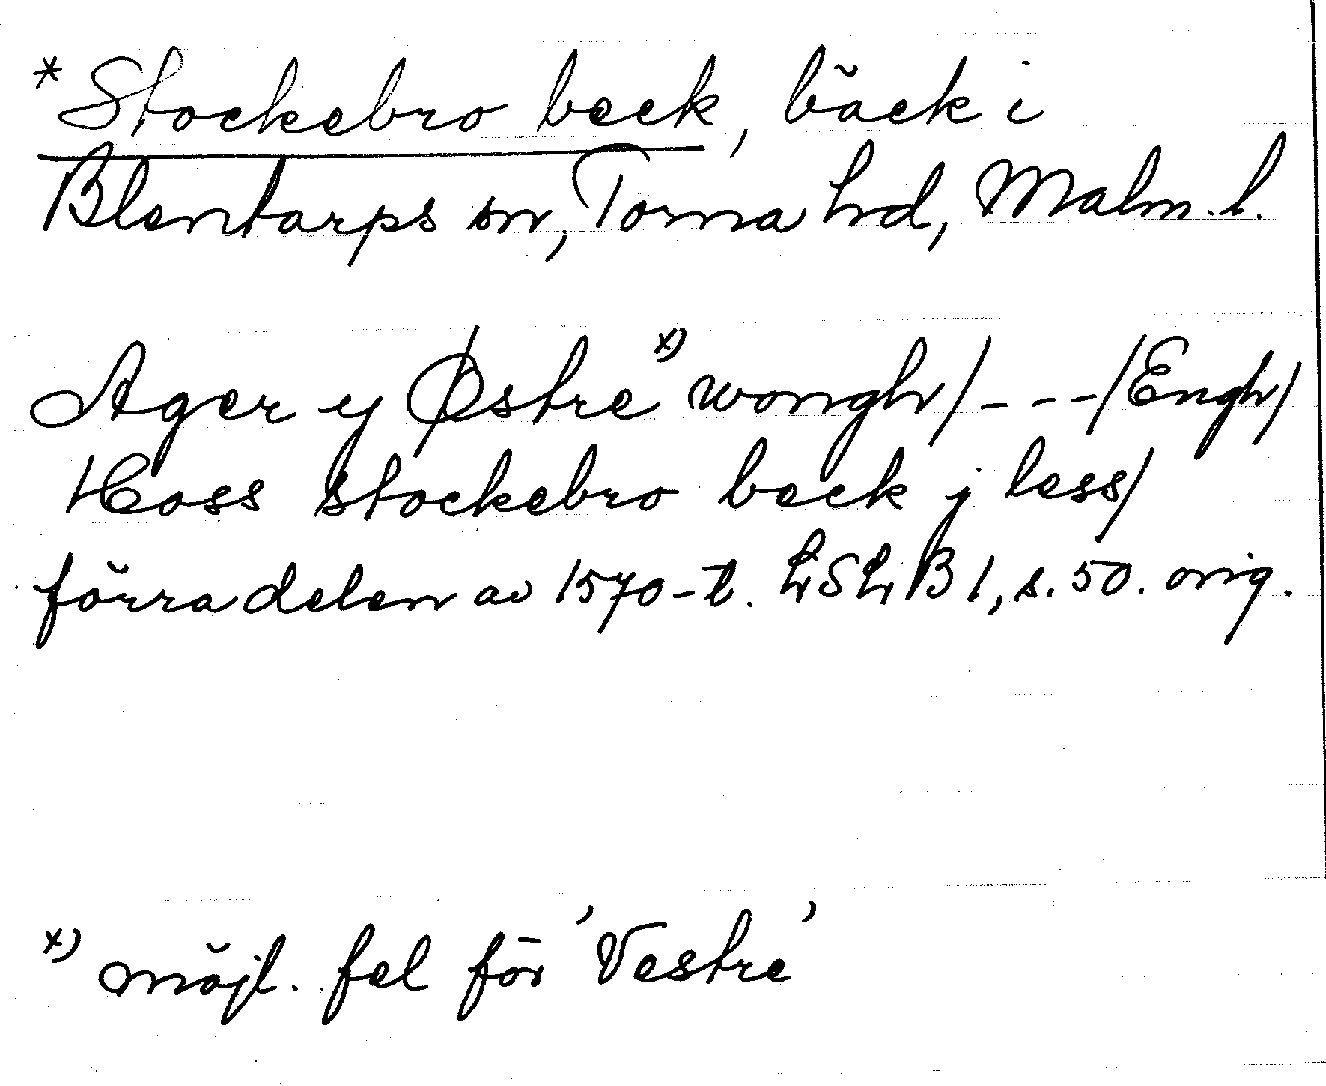 *Stockebro beck, bäck i
Blentarps sn, Torna hd, Malm. l.
Ager y Østre x) wongh/---/Engh/
Hoss stockebro beck j less/
förra delen av 1570-t. LSLB 1, s. 50. orig.
x) möjl. fel för 'Vestre'